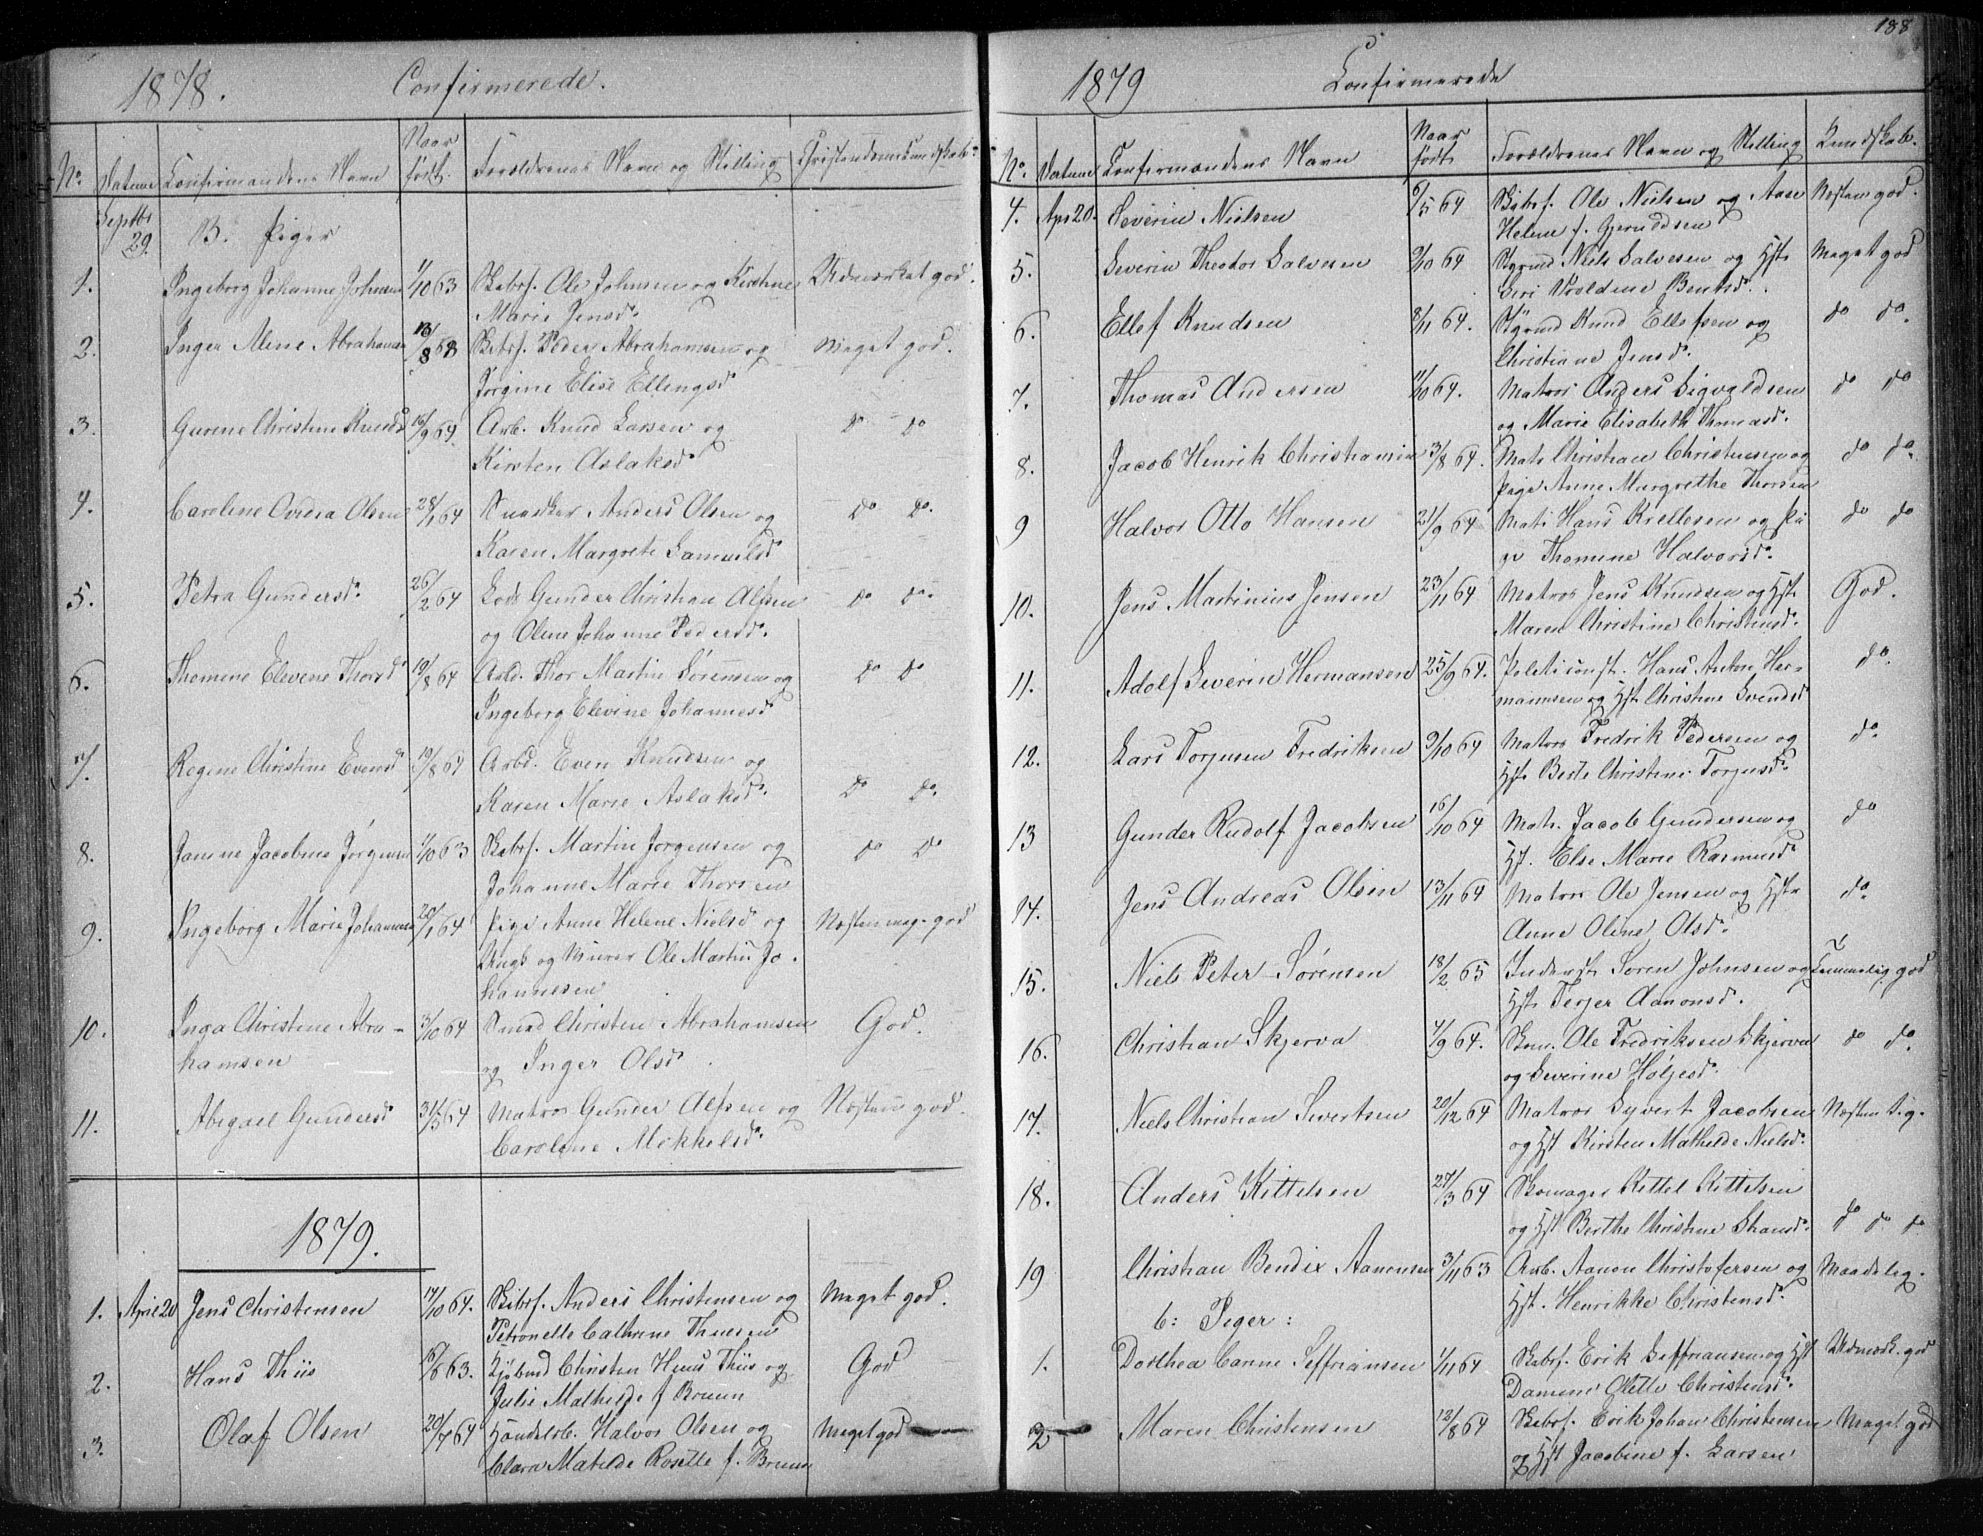 1878. Confirmerede.
No. Datum Confirmandens Navn Naar født. Forældrenes Navn og Stilling Christendomskundskab.
Septbr 29. B. Piger
1. Ingeborg Johanne Johnsen 1/10 63 Skibsf. Ole Johnsen og Kirstine Udmærket god.
Marie Jensd.
2. Inger Alene Abrahamsen 13/8 63 Skibsf. Peder Abrahamsen og Meget god.
Jørgine Elise Ellingsd.
3. Gurine Christine Knudsd. 16/9 64. Arb. Knud Larsen og do do
Kirsten Aslaksd.
4. Caroline Ovidia Olsen 28/1 64 Snedker Anders Olsen og do do.
Karen Margrete Samuelsd.
5. Petra Gundersd. 26/2 64 Lods Gunder Christian Alfsen do do.
og Oline Johanne Pedersd.
6. Thomine Elevine Thorsd. 19/8 64 Arbd. Thor Martin Sørensen og do do
Ingeborg Elevine Johannesd.
7. Regine Christine Evensd. 19/8 64 Arbd. Even Knudsen og
Karen Marie Aslaksd. do do.
8. Janine Jacobine Jørgensen 1/10 63 Skibsf. Martin Jørgensen og do do
Johanne Marie Thorsen
9. Ingeborg Marie Johannesen 20/1 64 Pige Anne Helene Nielsd og Næsten meget god
Ungk og Murer Ole Martin Jo-
hannesen
10. Inga Christine Abra- 3/10 64 Smed Christen Abrahamsen God.
hamsen og Inger Olsd.
11. Abigael Gundersd. 31/5 64 Matros Gunder Alfsen og Næsten god.
Caroline Mikkelsd.
1879.
1. April 20 Jens Christensen 14/10 64. Skibsf. Anders Christensen og Meget god.
Petronelle Cathrine Thuesen
2. Hans Thiis 6/6 63. Kjøbmd Christen Huus Thiis og God
Julie Mathilde f Bruun
3. Olaf Olsen 20/7 64 Handelsb. Halvor Olsen og Meget god
Clara Matilde Rosette f. Bruun
188
1879 Confirmerede
No. Datum Confirmandens Navn Naar født Forældrenes Navn og Stilling Kundskab.
4. Apr 20. Severin Nielsen 6/5 64 Skibsf. Ole Nielsen og Aase Næsten god.
Helene f. Gjeruldsen
5. Severin Theodor Salvesen 9/10 64 Styrmd Niels Salvesen og Hst Meget god
Siri Uroldine Bentsd.
6. Ellef Knudsen 8/11 64. Styrmd Knud Ellefsen og do do.
Christiane Jensd.
7. Thomas Andersen 11/10 64. Matros Anders Sigvaldsen do do
og Marie Elisabeth Thomasd.
8. Jacob Henrik Christiansen 3/8 64. Matr Christian Christensen og do do.
Pige Anne Margrethe Thorsen
9 Halvor Otto Hansen 21/9 64 Matr Hans Krellesen og Pi do do
ge Thomine Halvorsd.
10. Jens Martinius Jensen 23/11 64 Matros Jens Knudsen og Hst God.
Maren Christine Christensd.
11. Adolf Severin Hermansen 25/9 64. Politiconst. Hans Anton Her- do.
mannsen og Hst Christine Svendsd
12. Lars Torjusen Fredriksen 9/10 64 Matros Fredrik Pedersen og do.
Hst Berte Christine Torjusd.
13 Gunder Rudolf Jacobsen 16/10 64 Matr. Jacob Gundersen og do
Hst. Else Marie Rasmusd.
14. Jens Andreas Olsen 13/11 64 Matros Ole Jensen og Hst do.
Anne Oline Olsd.
15. Niels Peter Sørensen 18/2 65 Inderst Søren Johnsen og Temmelig god
Hst Terjer Aanonsd.
16. Christian Skjerva 4/9 64. Ole Fredriksen Skjerva do do.
og Severine Høljesd.
17. Niels Christian Sivertsen 20/12 64 Matros Syvert Jacobsen Næsten tig.
og Hst Kirsten Mathilde Nielsd.
18. Anders Kittelsen 27/3 64 Skomager Kittel Kittelsen
og Hst Berthe Christine Shansd. do do do
19 Christian Bendix Aanensen 3/11 63 Arb. Aanon Christofersen og Maadelig.
Hst. Henrikke Christensd.
b: Piger:
1. Dorthea Canne Seffriansen 1/11 64 Skibsf. Erik Seffriansen og Hst Udmærk. god
Damine Gjette Christensd.
2 Maren Christensen 12/8 64 Skibsf. Erik Johan Christensen Meget god
og Hst Jacobine f. Larsen